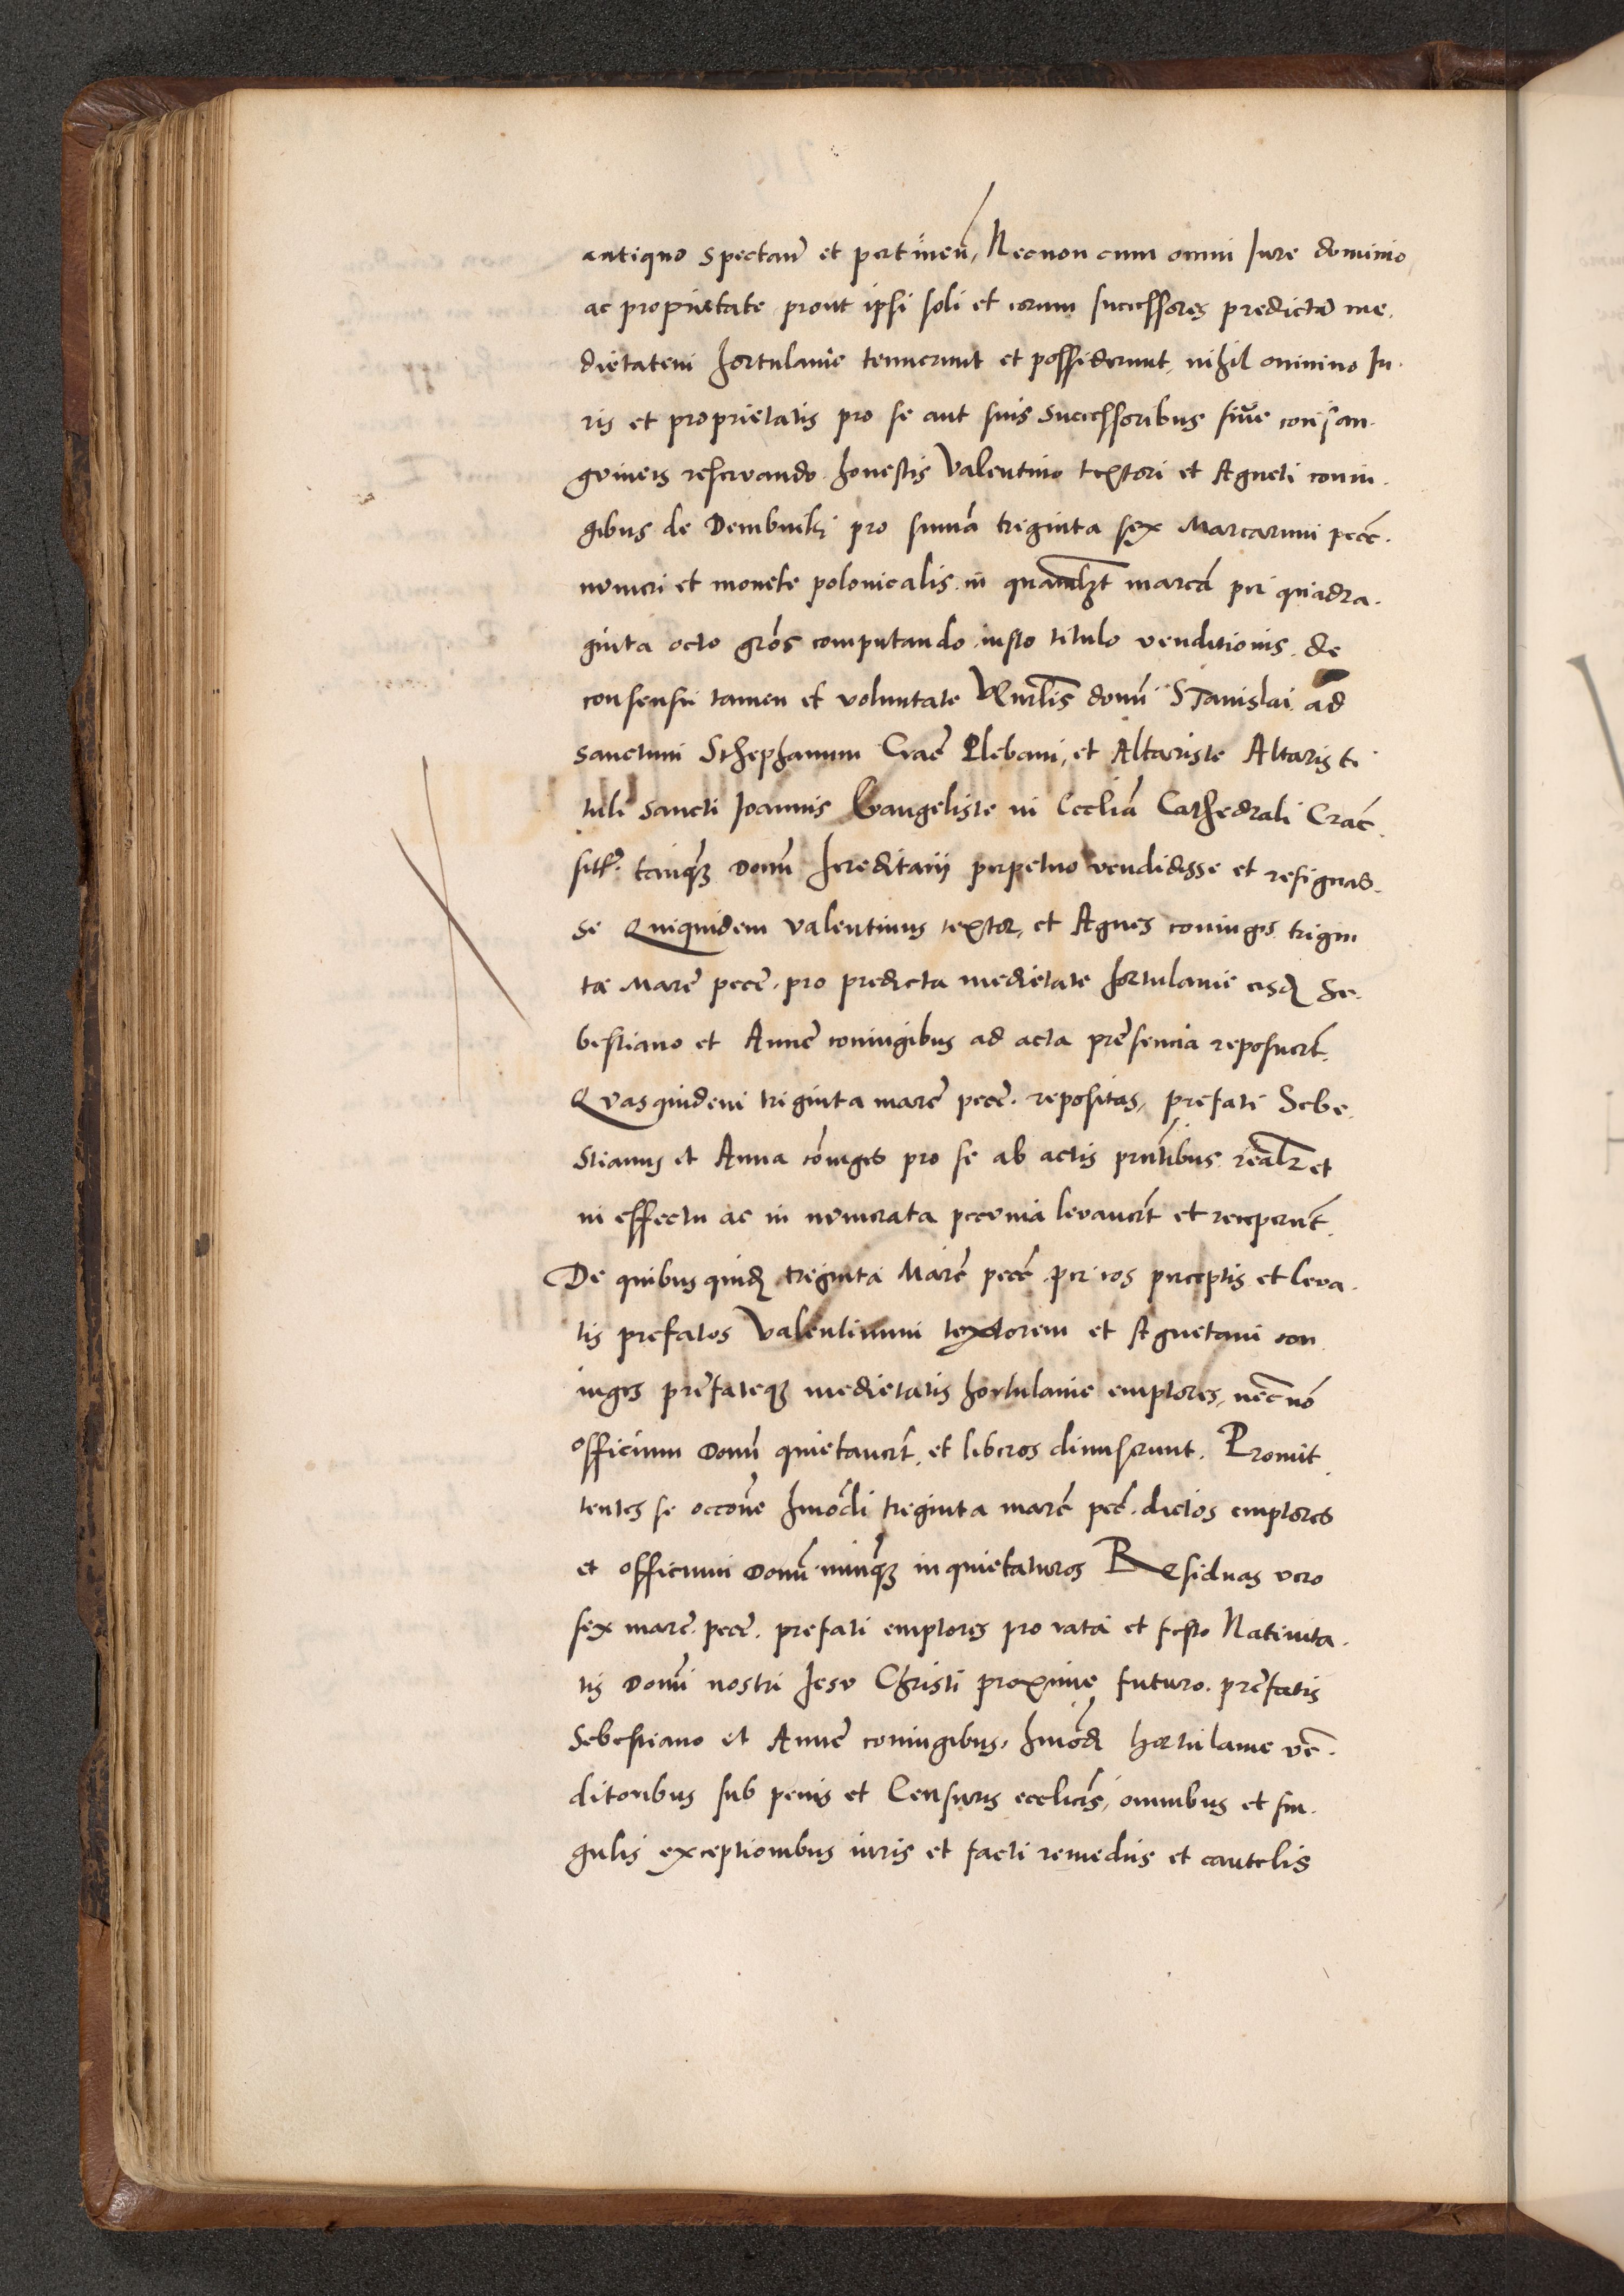 antiquo spectan̄ et pertinen̄, Necnon cum omni Iure dominio
ac proprietate prout ipsi soli et eorum successores predictā me.
dietatem hortulanie tenuerunt et possiderunt, nihil omnino Iu.
ris et proprietatis pro se aut suis successoribus sive consan.
gvineis reservando honestis Valentino textori et Agneti coniu.
gibus de pro summa treginta sex Marcarum pecc̄.
nvmeri et monete polonicalis in quamlʒt marcā per quadra.
ginta octo gros̄ computando iusto titulo venditionis de
consensu tamen et voluntate domī STanislai ad
sanctum Sthephanum Crac̄ Plebani, et Altariste Altaris ti
tuli sancti Ioannis Evangeliste in Eccliā Cathedrali Crac̄.
sitʒ. tanqʒ Domī hereditarij perpetuo vendidisse et resignas.
se Quiquidem Valentinus textor, et Agnes coniuges trigin
ta Marc̄ pecc̄. pro predicta medietate hortulanie eisdʒ Se.
bestiano et Anne coniugibus ad acta presencia reposuerūt.
Qvasquidem triginta marc̄ pecc̄. repositas, prefati Sebe.
stianus et Anna cōiuges pro se ab actis prn̄tibus realr̄ et
in effectu ac in nvmerata pecvnia levaverūt et receperūt.
De quibusquidʒ treginta Marc̄ pecc̄ per eos perceptis et leva.
tis prefatos Valentinum textorem et Agnetam con
iuges prefateqʒ medietatis hortulanie emptores, necnō
officium Domī quietaverūt, et liberos dimiserunt. Promit
tentes se occōne hmōdi treginta marc̄ pec̄. dictos emptores
et officium Domī nunqʒ inquietaturos Residvas vero
sex marc̄. pecc̄. prefati emptores pro rata et festo Nativita.
tis Domī nostri Iesv Christi proxime futuro. prefatis
Sebestiano et Anne coniugibus, hmōdi hortulanie vē.
ditoribus sub penis et Censuris ecclicis̄, omnibus et sin.
gulis exceptionibus iuris et facti remediis et cautelis